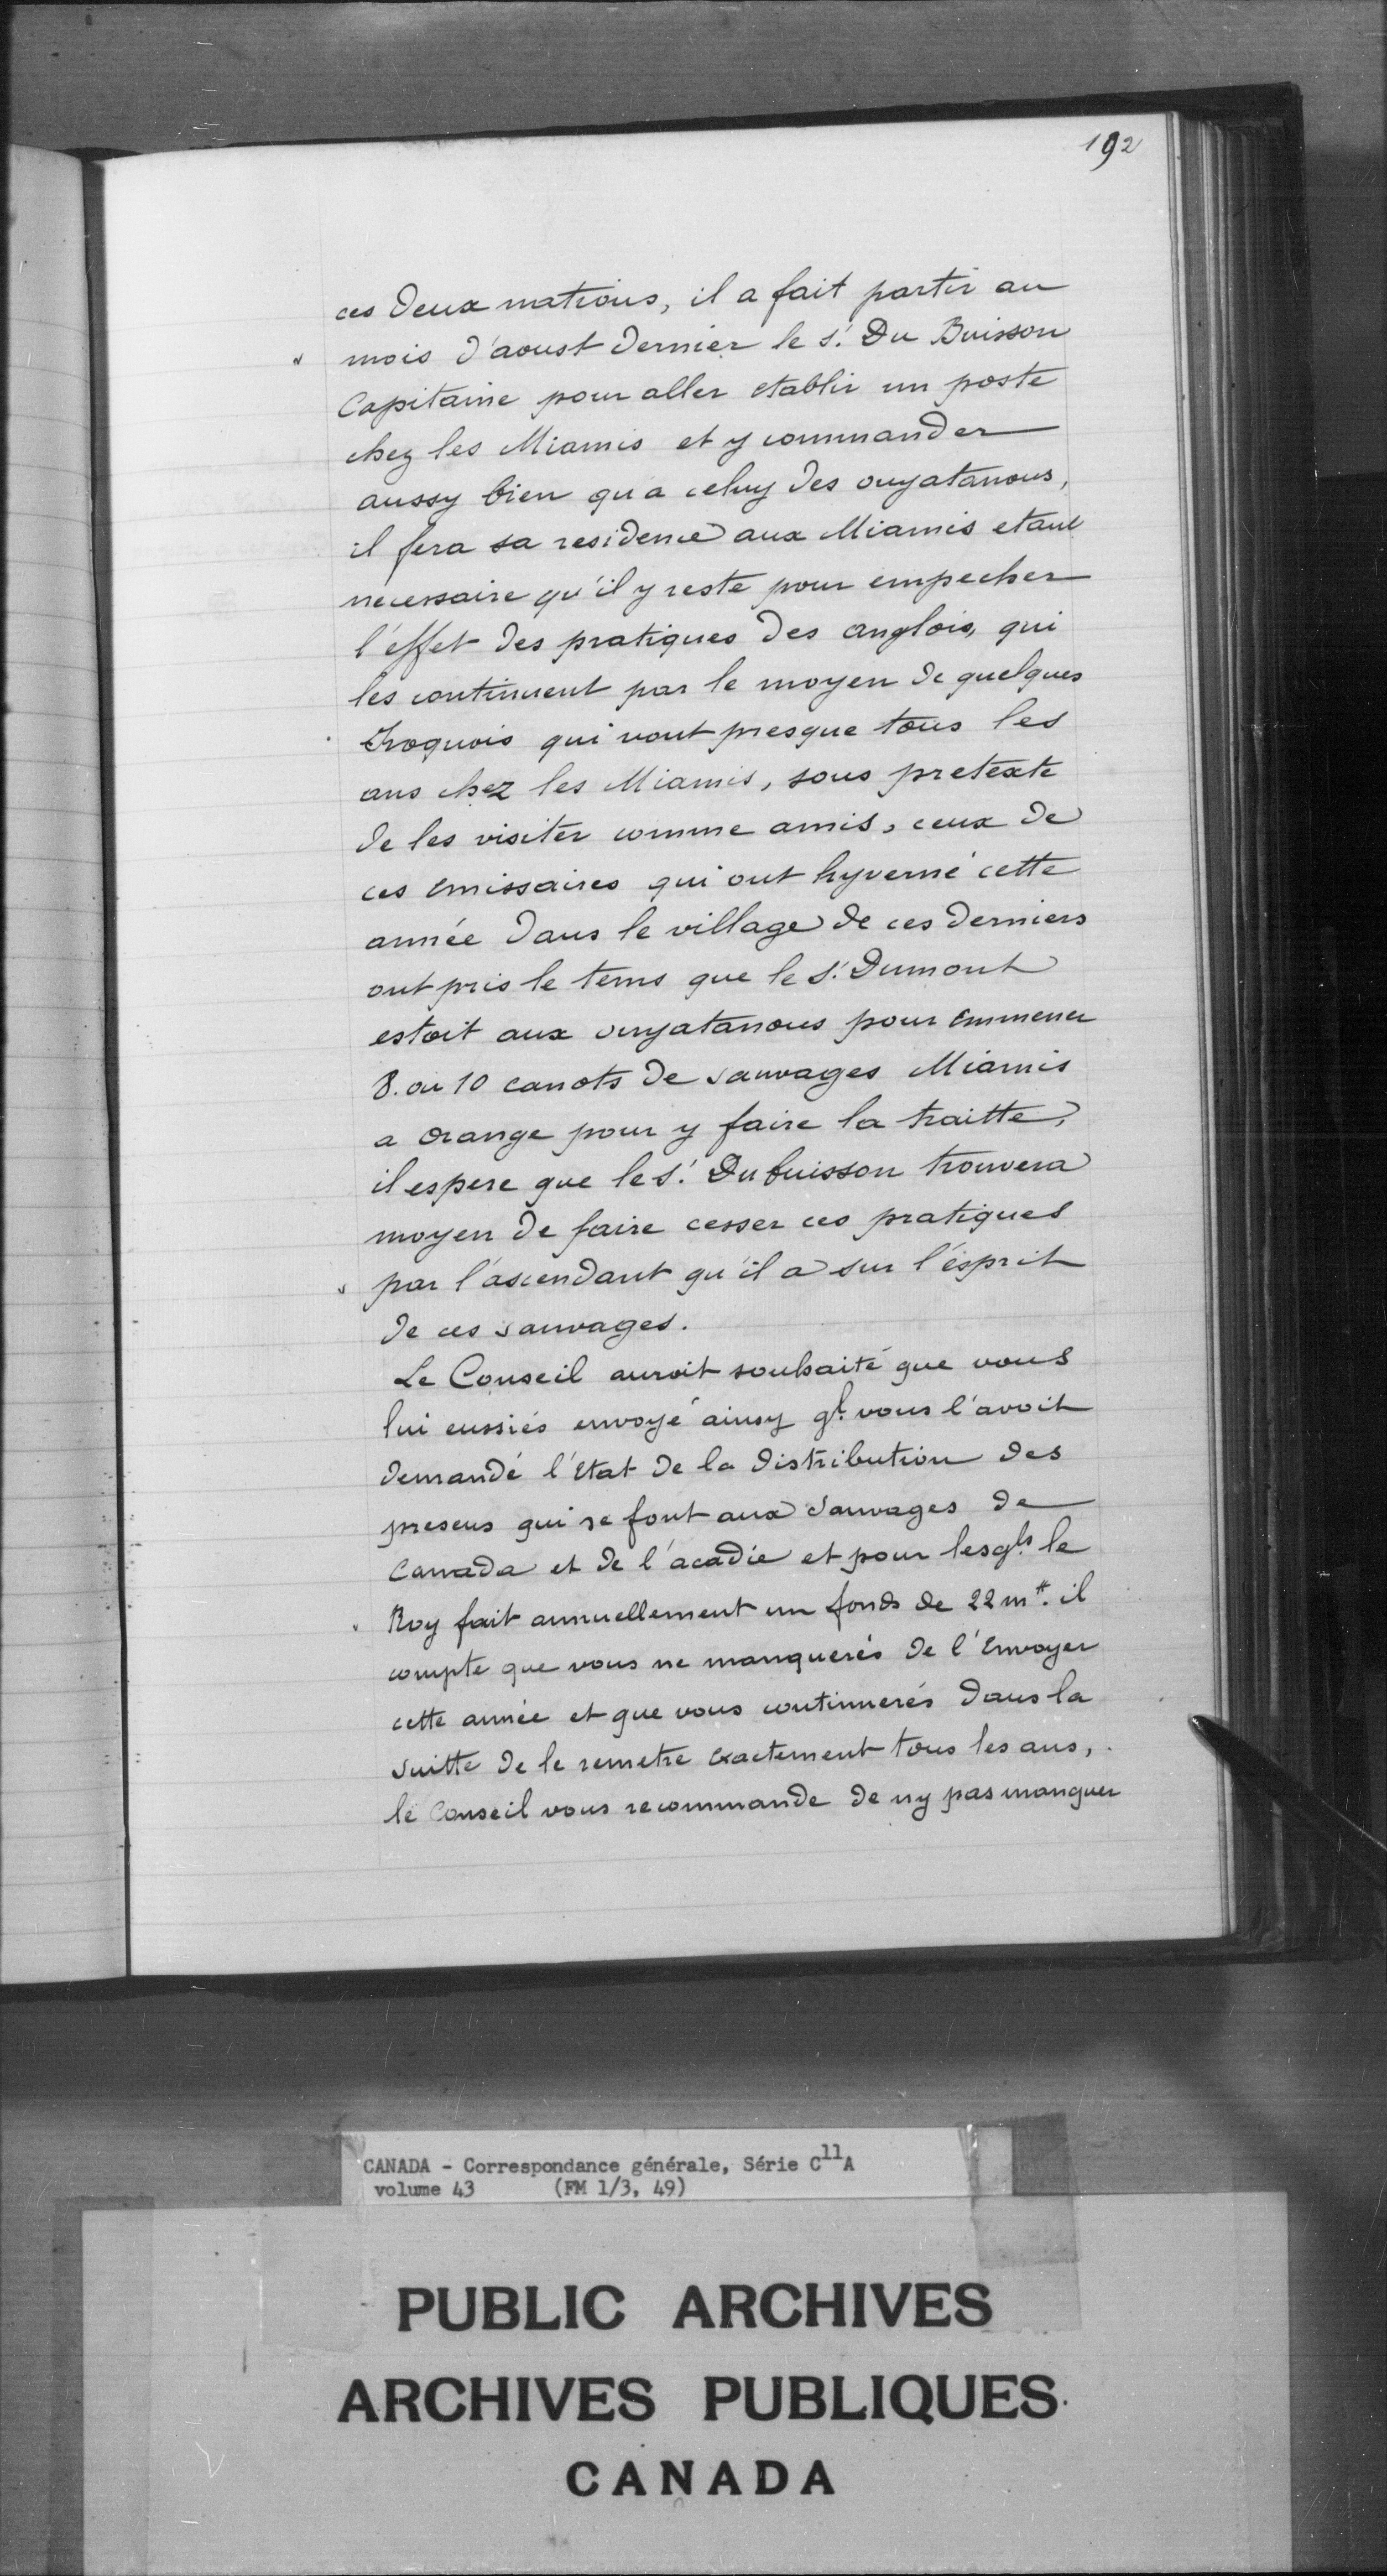 192
ces deux nations, il a fait partir au
mois d'aoust dernier le s.r Du Buisson
Capitaine pour aller etablir un poste
chez les Miamis et y commander
aussy bien qu'a celuy des ouyatanous,
il fera sa residence aux Miamis etant
necessaire qu'il y reste pour empecher
l'effet des pratiques des anglois, qui
les continuent par le moyen de quelques
Iroquois qui vont presque tous les
ans chez les Miamis, sous pretexte
de les visiter comme amis, ceux de
ces emissaires qui ont hyverné cette
année dans le village de ces derniers
ont pris le tems que le s.r Dumont
estoit aux ouyatanous pour emmener
8. ou 10 canots de sauvages Miamis
a orange pour y faire la traitte,
il espere que le s.r Dubuisson trouvera
moyen de faire cesser ces pratiques
par l'ascendant qu'il a sur l'ésprit
de ces sauvages.
Le Conseil auroit souhaité que vous
lui eussiés envoyé ainsy ql vous l'avoit
demandé l'état de la distribution des
presens qui se font aux sauvages de
Canada et de l'acadie et pour lesqls le
Roy fait annuellement un fonds de 22 m#. il
compte que vous ne manquerés de l'Envoyer
cette année et que vous continuerés dans la
suitte de le remetre exactement tous les ans,
le Conseil vous recommande de ny pas manquer
CANADA - Correspondance générale, Série C11A
volume 43 (FM 1/3, 49)
PUBLIC ARCHIVES
ARCHIVES PUBLIQUES
CANADA